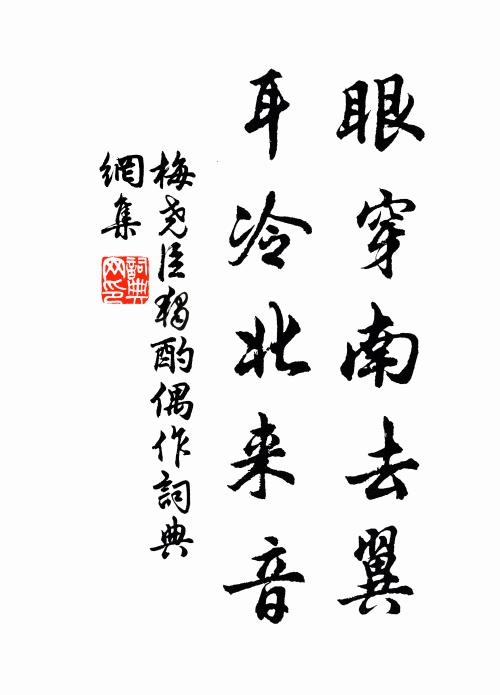 眼穿南去翼
耳冷北来音
梅尧臣独酌偶作詞典
網集
詞典
网印